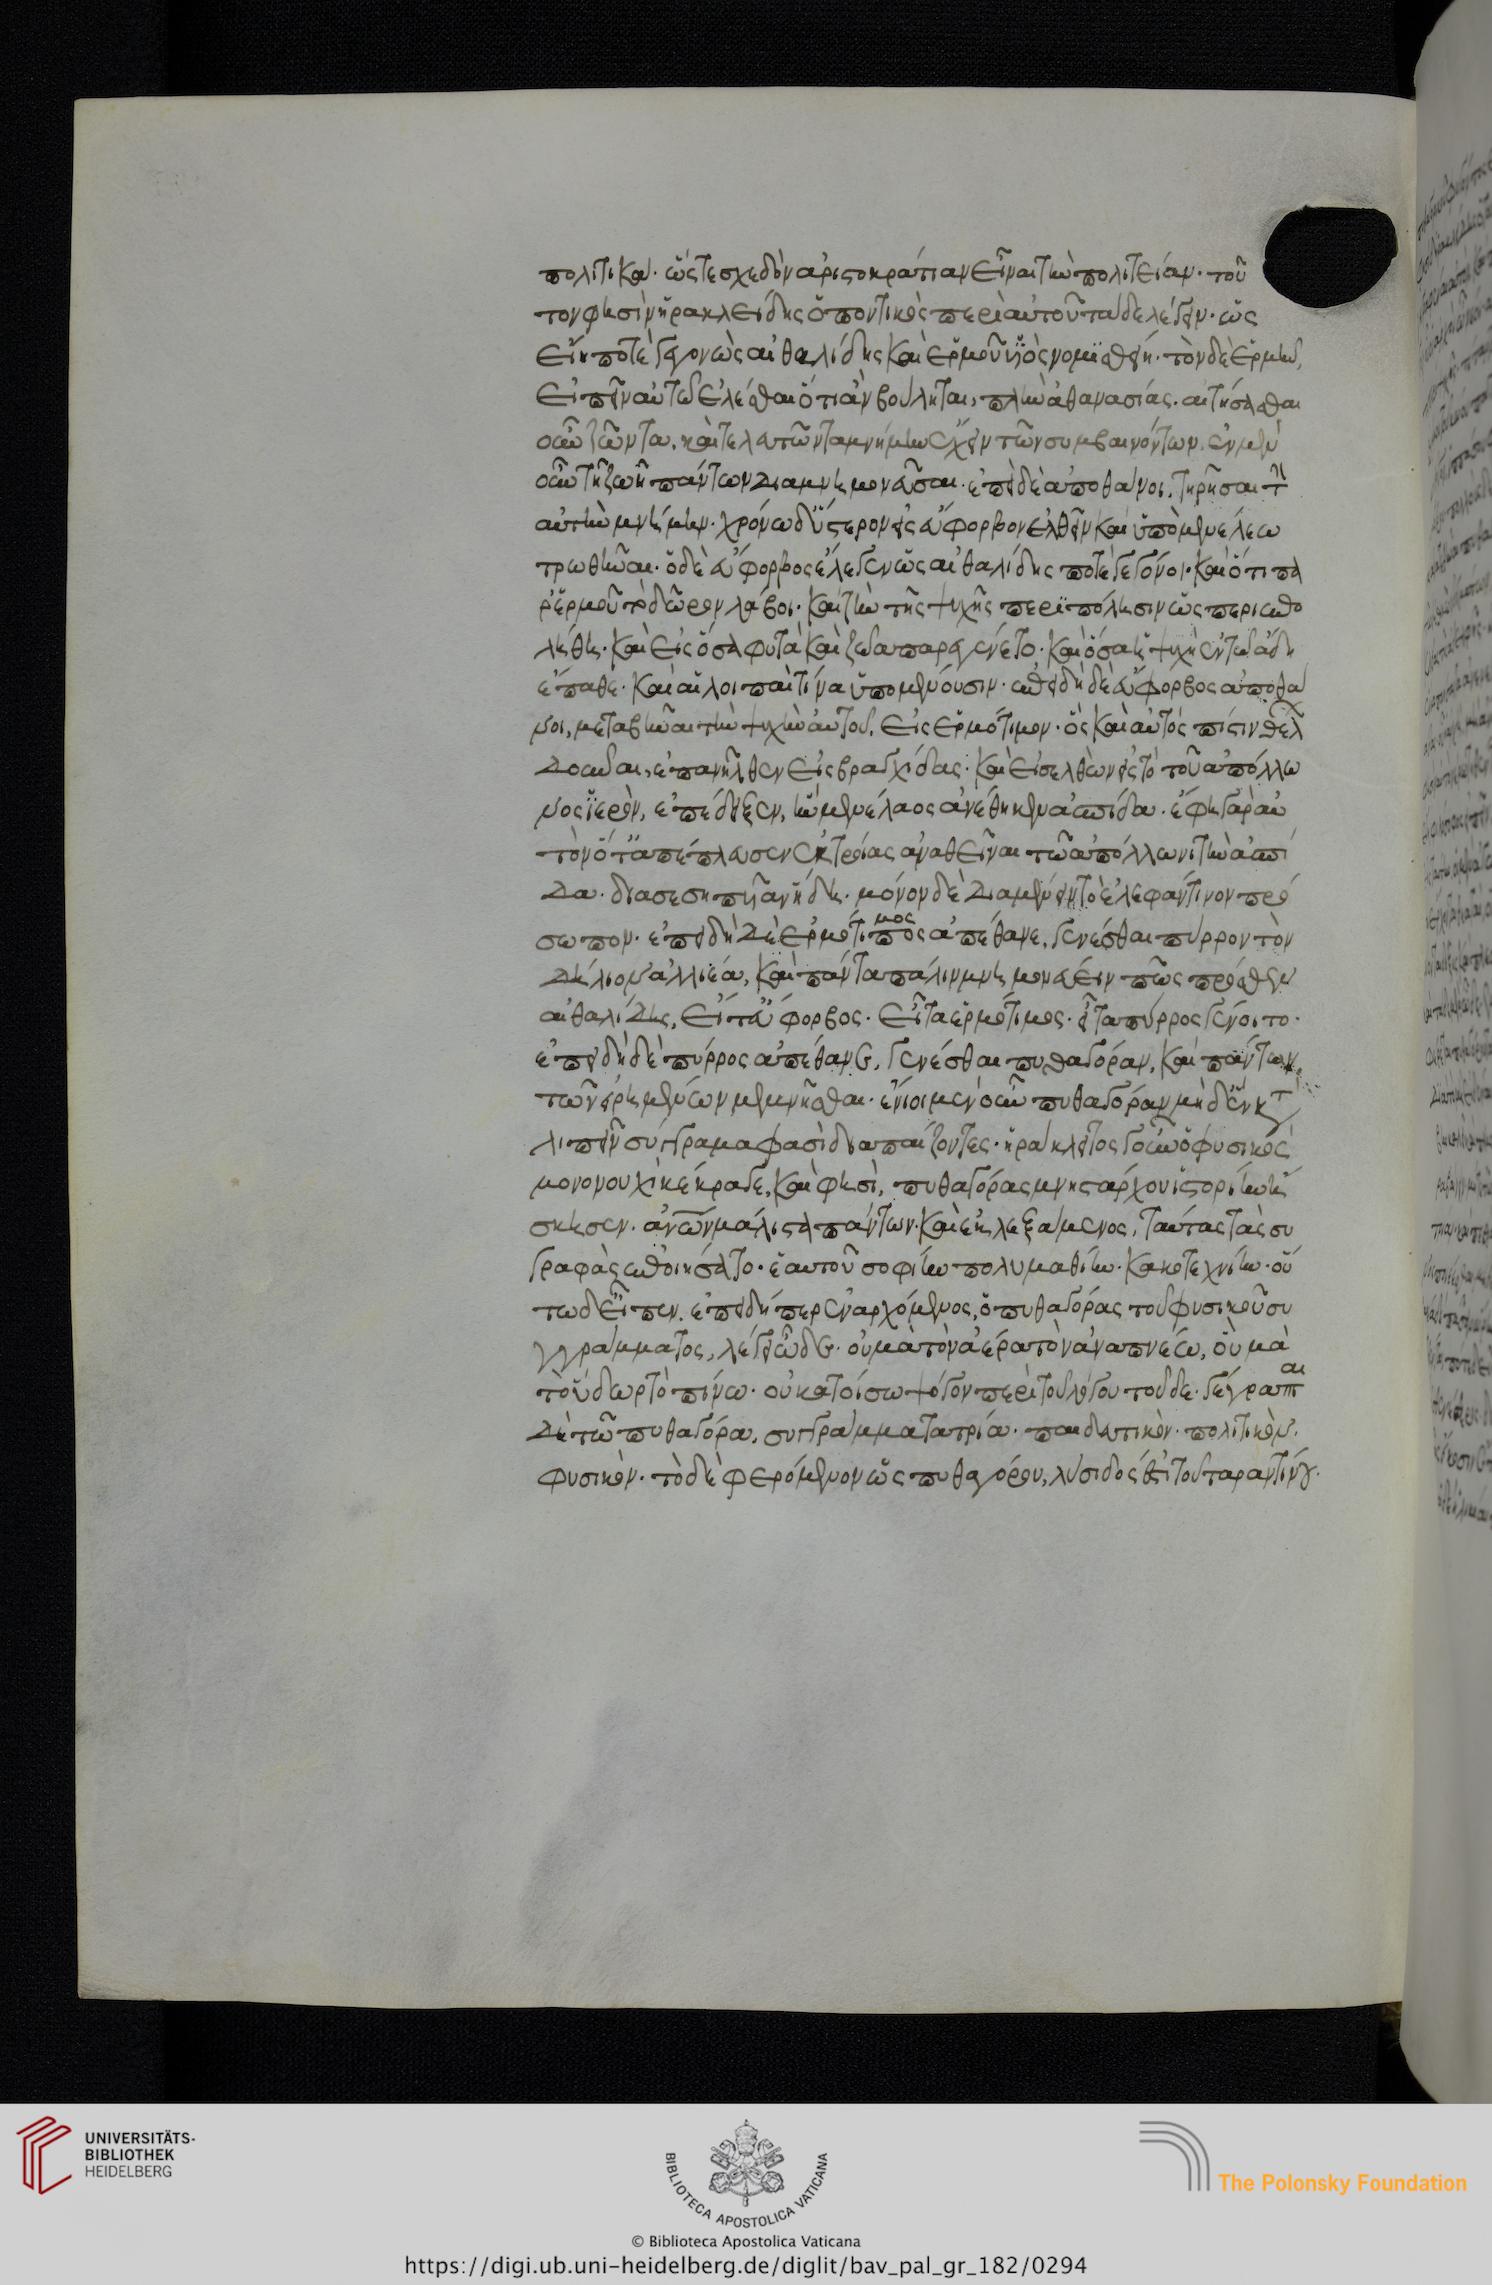 πολιτικά· ὥστε σχεδὸν ἀριστοκρατίαν εἶναι τὴν πολιτείαν· τοῦ
τον φησὶν ἡρακλείδης ὁ ποντικὸς περὶ αὑτοῦ τάδε λέγειν· ὡς
εἴη ποτὲ γεγονὼς αἰθαλίδης καὶ ἑρμοῦ υἱὸς νομισθείη· τὸν δὲ ἑρμῆν
εἰπεῖν αὐτῷ ἑλέσθαι ὅτι ἂν βούληται, πλὴν ἀθανασίας. αἰτήσασθαι
οὖν ζῶντα, καὶ τελευτῶντα μνήμην ἔχειν τῶν συμβαινόντων. ἐν μὲν
οὖν τῆ ζωῆ πάντων διαμνημονεῦσαι· ἐπεὶ δὲ ἀποθάνοι, τηρῆσαι τὴν
αὐτὴν μνήμην. χρόνω δ' ὕστερον εἰς εὔφορβον ἐλθεῖν καὶ ὑπὸ μενέλεω
τρωθῆναι· ὁ δὲ εὔφορβος ἔλεγεν ὡς αἰθαλίδης ποτὲ γεγόνοι· καὶ ὅτι πα
ρ' ἑρμοῦ τὸ δῶρον λάβοι· καὶ τὴν τῆς ψυχῆς περιπόλησιν ὡς περιεπο
λήθη· καὶ εἰς ὅσα φυτὰ καὶ ζῶα παρεγένετο· καὶ ὅσα ἡ ψυχὴ ἐν τῶ ἅδη
ἔπαθε· καὶ αἱ λοιπαὶ τίνα ὑπομένουσιν· ἐπειδὴ δὲ εὔφορβος ἀποθά
νοι, μεταβῆναι τὴν ψυχὴν αὐτοῦ, εἰς ἑρμότιμον· ὃς καὶ αὐτὸς πίστιν θέλ
δοῦναι, ἐπανῆλθεν εἰς βραγχίδας· καὶ εἰσελθὼν εἰς τὸ τοῦ ἀπόλλω
νος ἱερὸν, ἐπέδειξεν, ἣν μενέλαος ἀνέθηκεν ἀσπίδα· ἔφη γὰρ αὐ
τὸν ὅτ' ἀπέπλευσεν ἐκ τροίας ἀναθεῖναι τῶ ἀπόλλωνι τὴν ἀσπί
δα· διασεσηπυῖαν ἤδη· μόνον δὲ διαμένειν τὸ ἐλεφάντινον πρό
σωπον· ἐπειδὴ δὲ ἑρμότιμος ἀπέθανε, γενέσθαι πύρρον τὸν
δήλιον ἁλλιέα, καὶ πάντα πάλιν μνημονεύειν πῶς πρόσθεν
αἰθαλίδης, εἶτ' εὔφορβος· εἶτα ἑρμότιμος· εἶτα πύρρος γένοιτο·
ἐπειδὴ δὲ πύρρος ἀπέθανε, γενέσθαι πυθαγόραν, καὶ πάντων
τῶν εἰρημένων μεμνῆσθαι· ἔνιοι μὲν οὖν πυθαγόραν μηδὲν κατ
λιπεῖν σύγγραμα φασὶ διαπαίζοντες· ἡράκλειτος γοῦν ὁ φυσικός
μονονουχὶ κέκραγε, καὶ φησὶ, πυθαγόρας μνησάρχου ἱστορίην ἤ
σκησεν· ἀνῶν μάλιστα πάντων· καὶ ἐκλεξάμενος, ταύτας τὰς συ
γραφὰς ἐποιήσατο· ἑαυτοῦ σοφίην πολυμαθίην· κακοτεχνίην· οὕ
τω δ' εἶπεν. ἐπειδήπερ ἐναρχόμενος, ὁ πυθαγόρας τοῦ φυσικοῦ συ
γγράμματος, λέγει ὧδε· οὐ μὰ τὸν ἀέρα τὸν ἀναπνέω, οὐ μὰ
τὸ ὕδωρ τὸ πίνω· οὐ κατοίσω ψόγον περὶ τοῦ λόγου τοῦδε· γέγραπται
δὲ τῶ πυθαγόρα, συγγράμματα τρία· παιδευτικόν· πολιτικόν.
φυσικόν· τὸ δὲ φερόμενον ὡς πυθαγόρου, λύσιδός ἐστι τοῦ ταραντίνου·
UNIVERSITÄTS-
BIBLIOTHEK
HEIDELBERG
BIBLIOTECA APOSTOLICA VATICANA
The Polonsky Foundation
© Biblioteca Apostolica Vaticana
https://digi.ub.uni-heidelberg.de/diglit/bav_pal_gr_182/0294